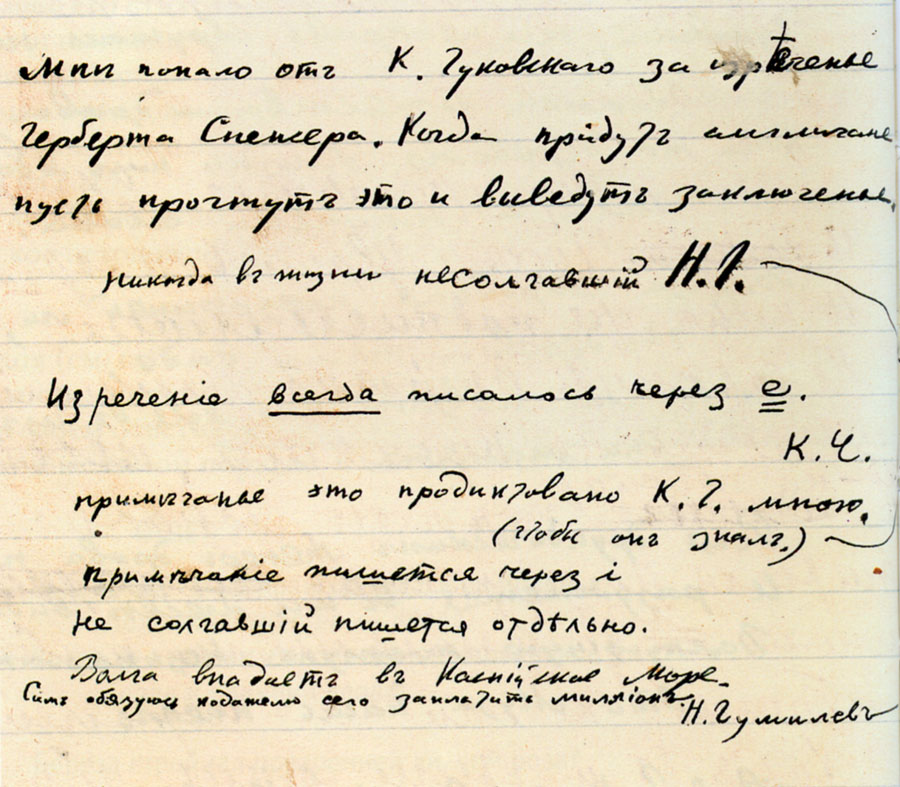 Мнѣ попало отъ К. Чуковскаго за изрѣченье
Герберта Спенсера. Когда прiйдутъ англичане
пусть прочтутъ это и выведутъ заключенье.
никогда въ жизни несолгавшiй Н.Г.
Изреченiе всегда писалось через е.
К.Ч.
примѣчанье это продиктовано К.Ч. мною.
(чтобы онъ зналъ.)
примѣчанiе пишется через i
не солгавшiй пишется отдѣльно.
Волга впадаетъ въ Каспiйское Море.
Симъ обязуюсь подателю сего заплатить миллiонъ.
Н. Гумилевъ